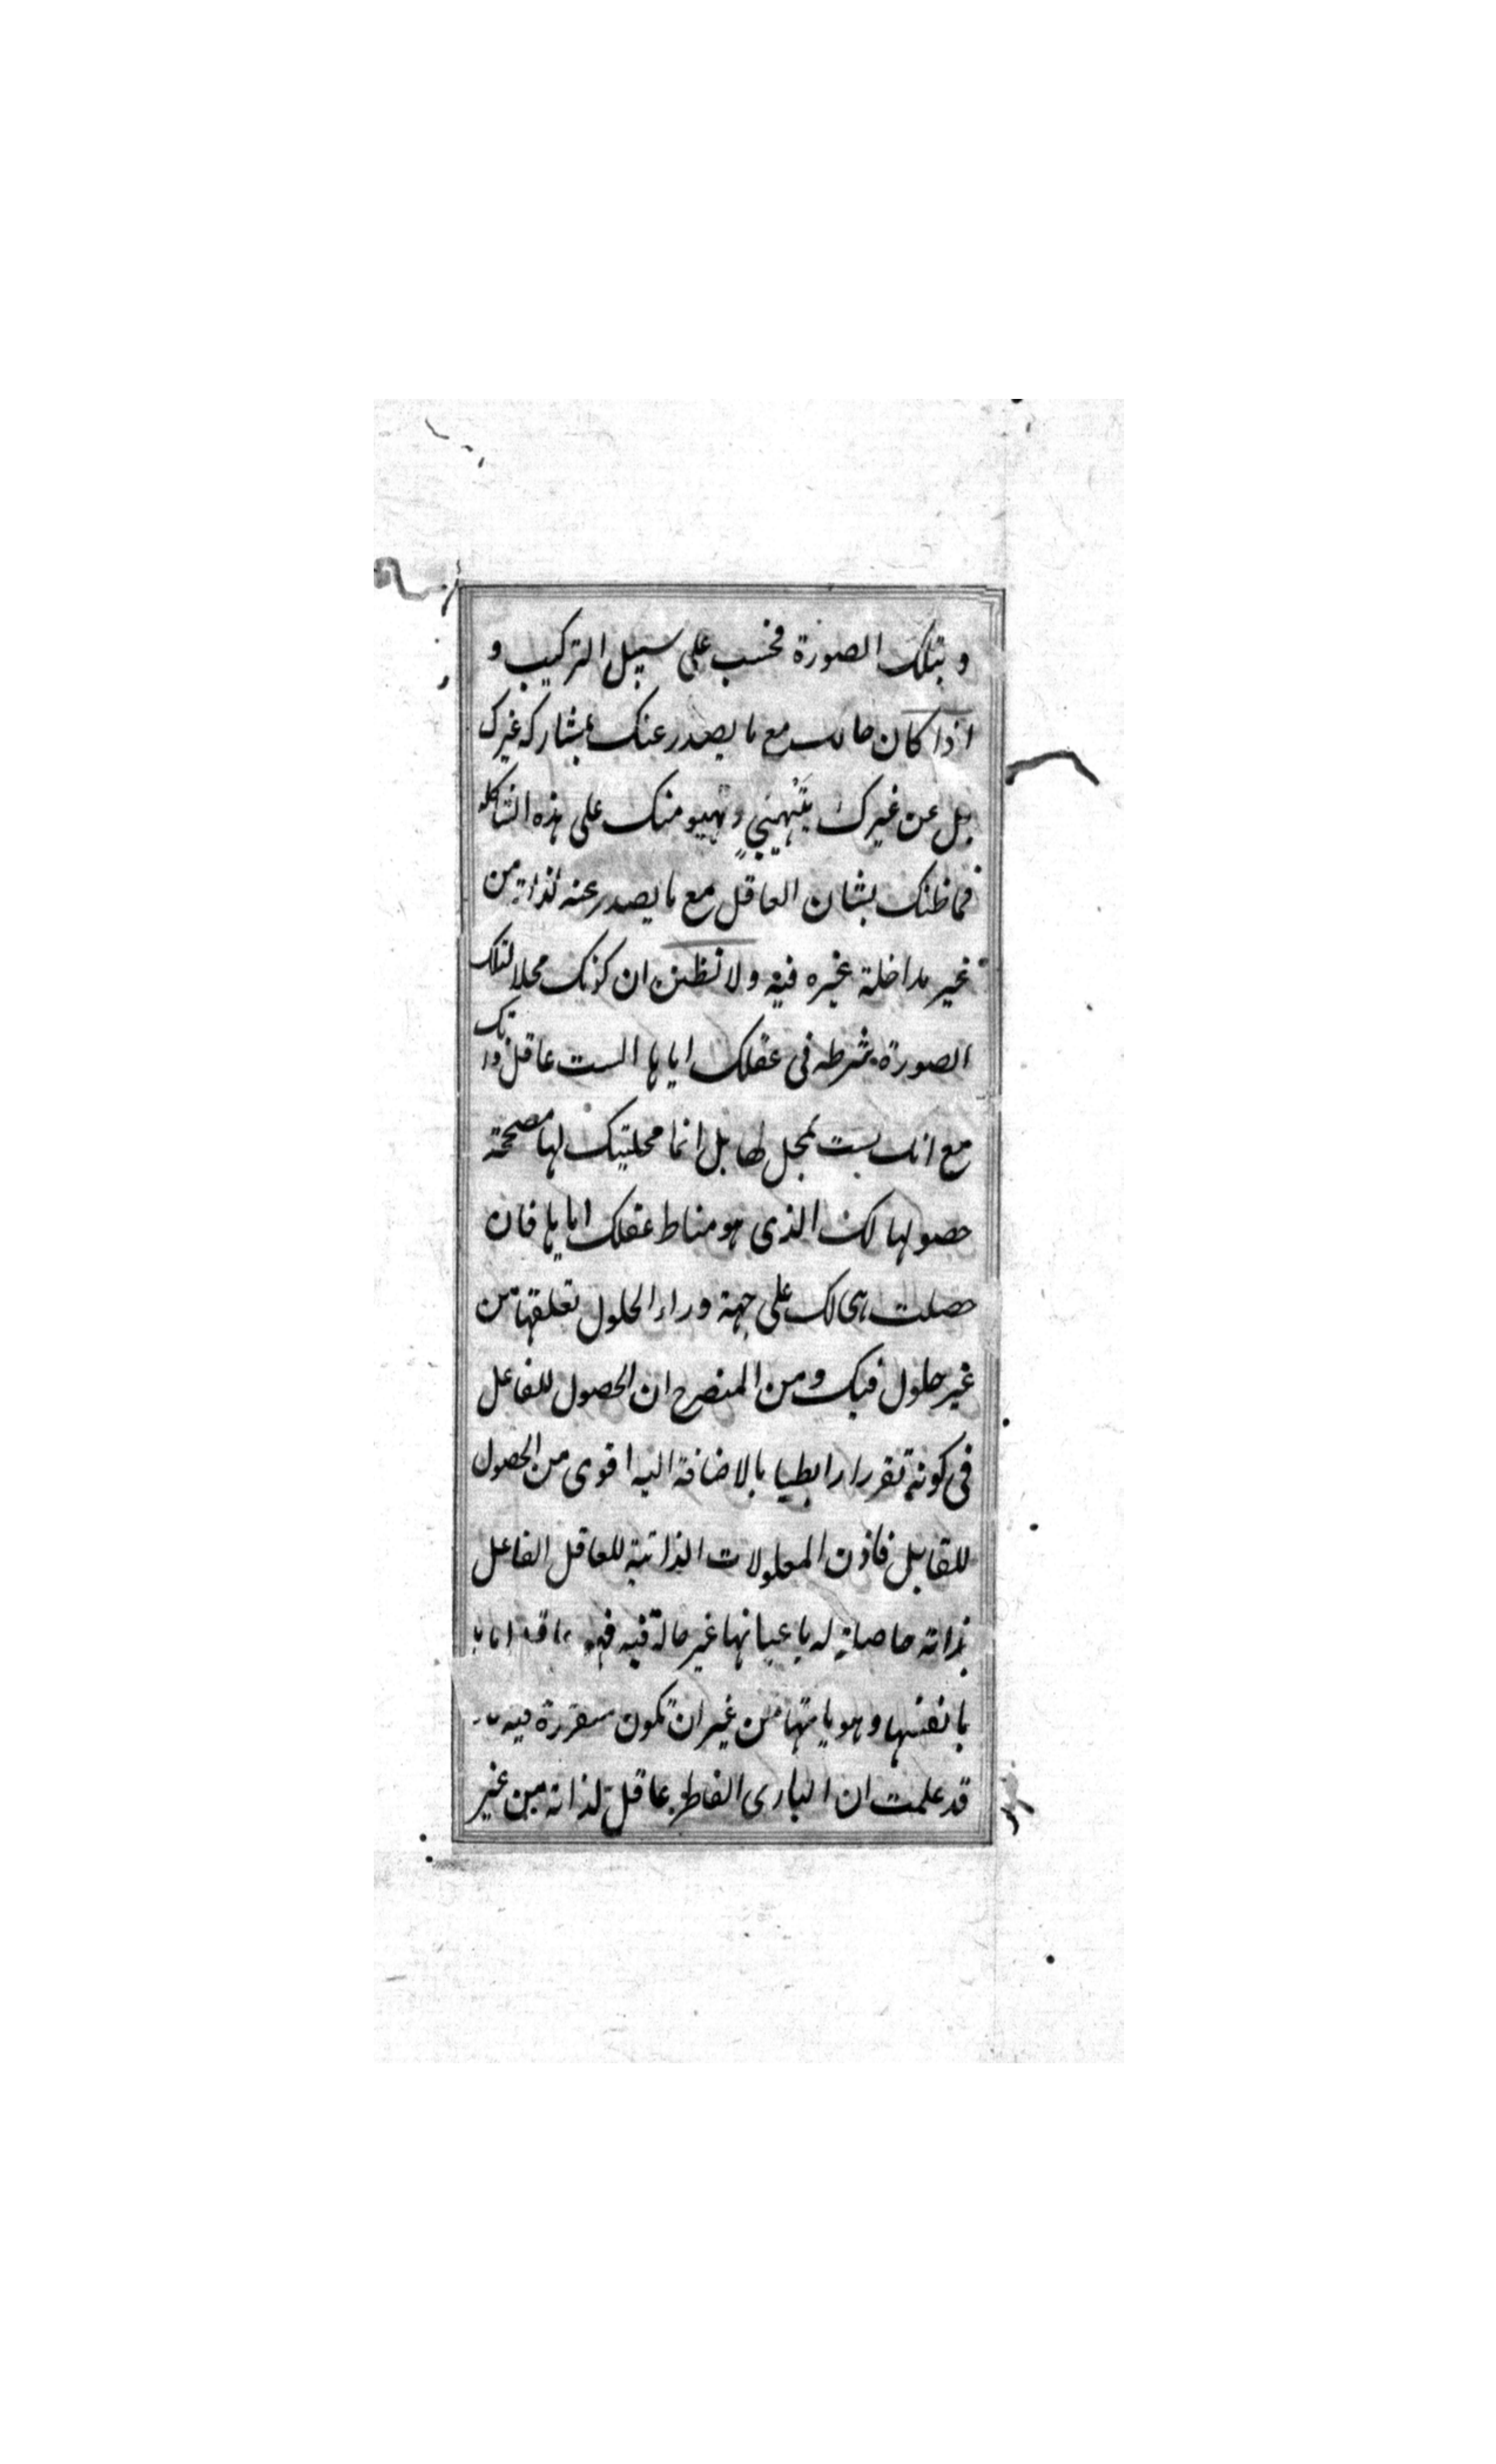 و بتلك الصورة فحسب على سبيل التركيب و
اذا كان حالك مع ما يصدر عنك بمشاركة غيرك
بل عن غيرك بتهيئ وتهيو منك على هذه الشاكله
فما ظنك بشان العاقل مع ما يصدر عنه لذاته من
غير مداخلة غيره فيه ولا تظنن ان كونك محلا لتلك
الصورة شرطه فى عقلك اياها الست عاقل ذاتك
مع انك لست بمحل لها بل انما محليتك لها مصححة
حصولها لك الذى هو مناط عقلك اياها فان
حصلت هى لك على جهة وراء الحلول تعلقتها من
غير حلول فيك و من المنصرح ان الحصول للفاعل
فى كونه تقررا رابطيا بالاضافة اليه اقوى من الحصول
للقابل فاذن المعلولات الذاتية للعاقل الفاعل
بذاته حاصلة له باعيانها غير حالة فيه فهو عاقل اياها
بانفسها و هوياتها من غير ان تكون متقررة فيه
قد علمت ان البارى الفاطر عاقل لذاته من غير